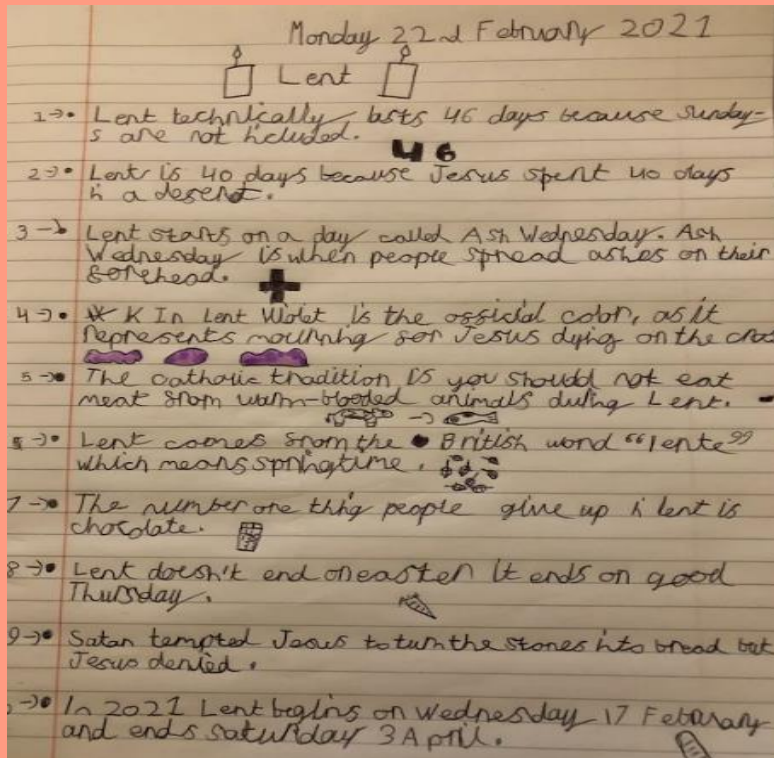 Monday 22nd February 2021
Lent
1→• Lent technically lasts 46 days because Sunday-
s are not included.
46
2→• Lent is 40 days because Jesus spent 40 days
in a desert.
3→ Lent starts on a day called Ash Wednesday. Ash
Wednesday is when people spread ashes on their
forehead.
4→• In Lent Violet is the official color, as it
represents mourning for Jesus dying on the cros
5→• The catholic tradition is you should not eat
meat from warm-blooded animals during Lent.
→
6→• Lent comes from the British word "lente"
which means springtime.
7→• The number one thing people give up in lent is
chocolate.
8→• Lent doesn't end on easter it ends on good
Thursday.
9→• Satan tempted Jesus to turn the stones into bread but
Jesus denied.
→• In 2021 Lent begins on Wednesday 17 February
and ends Saturday 3 April.